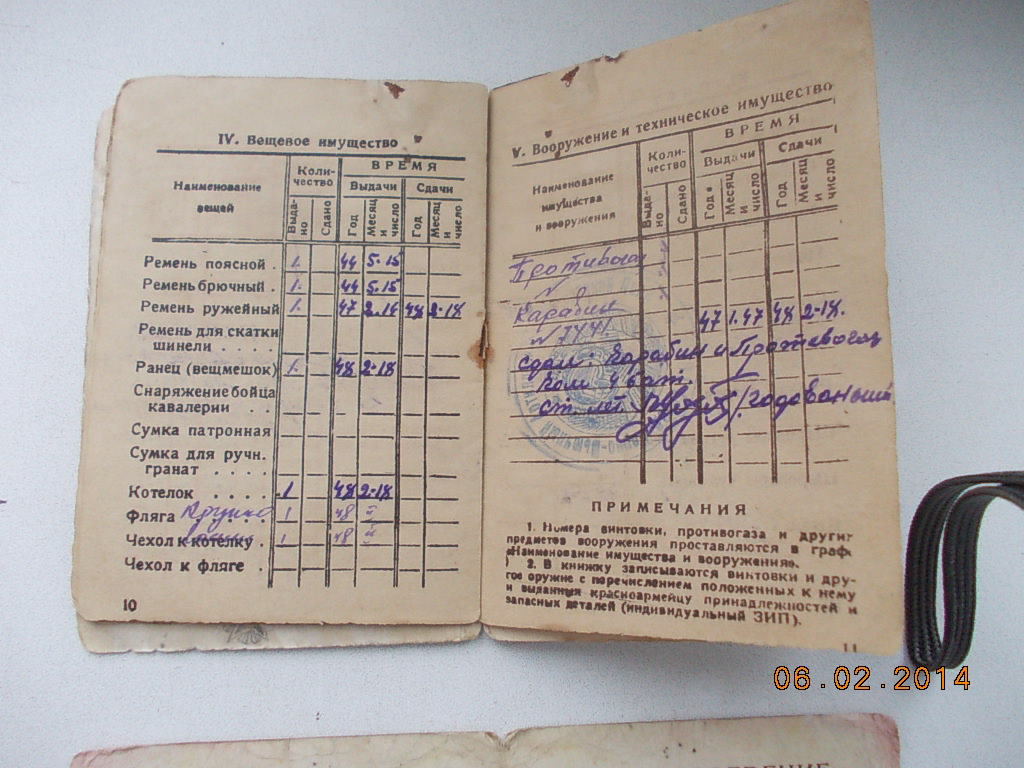 IV. Вещевое имущество
Наименование вещей
Коли-чество
ВРЕМЯ
Выдачи
Сдачи
Выда-но
Сдано
Год
Месяц и число
Год
Месяц и число
Ремень поясной . 1. 44 5-15
Ремень брючный . 1. 44 5-15
Ремень ружейный 1. 47 2-14 48 2-18
Ремень для скатки
шинели . . . .
Ранец (вещмешок) 1. 48 2-18
Снаряжение бойца
кавалерии . .
Сумка патронная
Сумка для ручн.
гранат . . . .
Котелок . . . . 1 48 2-18
Фляга Кружка 1 48 "
Чехол к котелку . 1 48 "
Чехол к фляге .
10
V. Вооружение и техническое имущество
Наименование
имущества
и вооружения
Коли-чество
ВРЕМЯ
Выдачи
Сдачи
Выда-но
Сдано
Год
Месяц и число
Год
Месяц и число
Противогаз
№
Карабин
№ 7441. 47 1.47 48 2-18.
сдал: Карабин и Противогаз
Ком 4 бат.
ст. лет /Годованый
ПРИМЕЧАНИЯ
1. Номера винтовки, противогаза и других
предметов вооружения проставляются в граф
«Наименование имущества и вооружения».
2. В книжку записываются винтовки и дру-
гое оружие с перечислением положенных к нему
и выданных красноармейцу принадлежностей и
запасных деталей (индивидуальный ЗИП).
11
06.02.2014